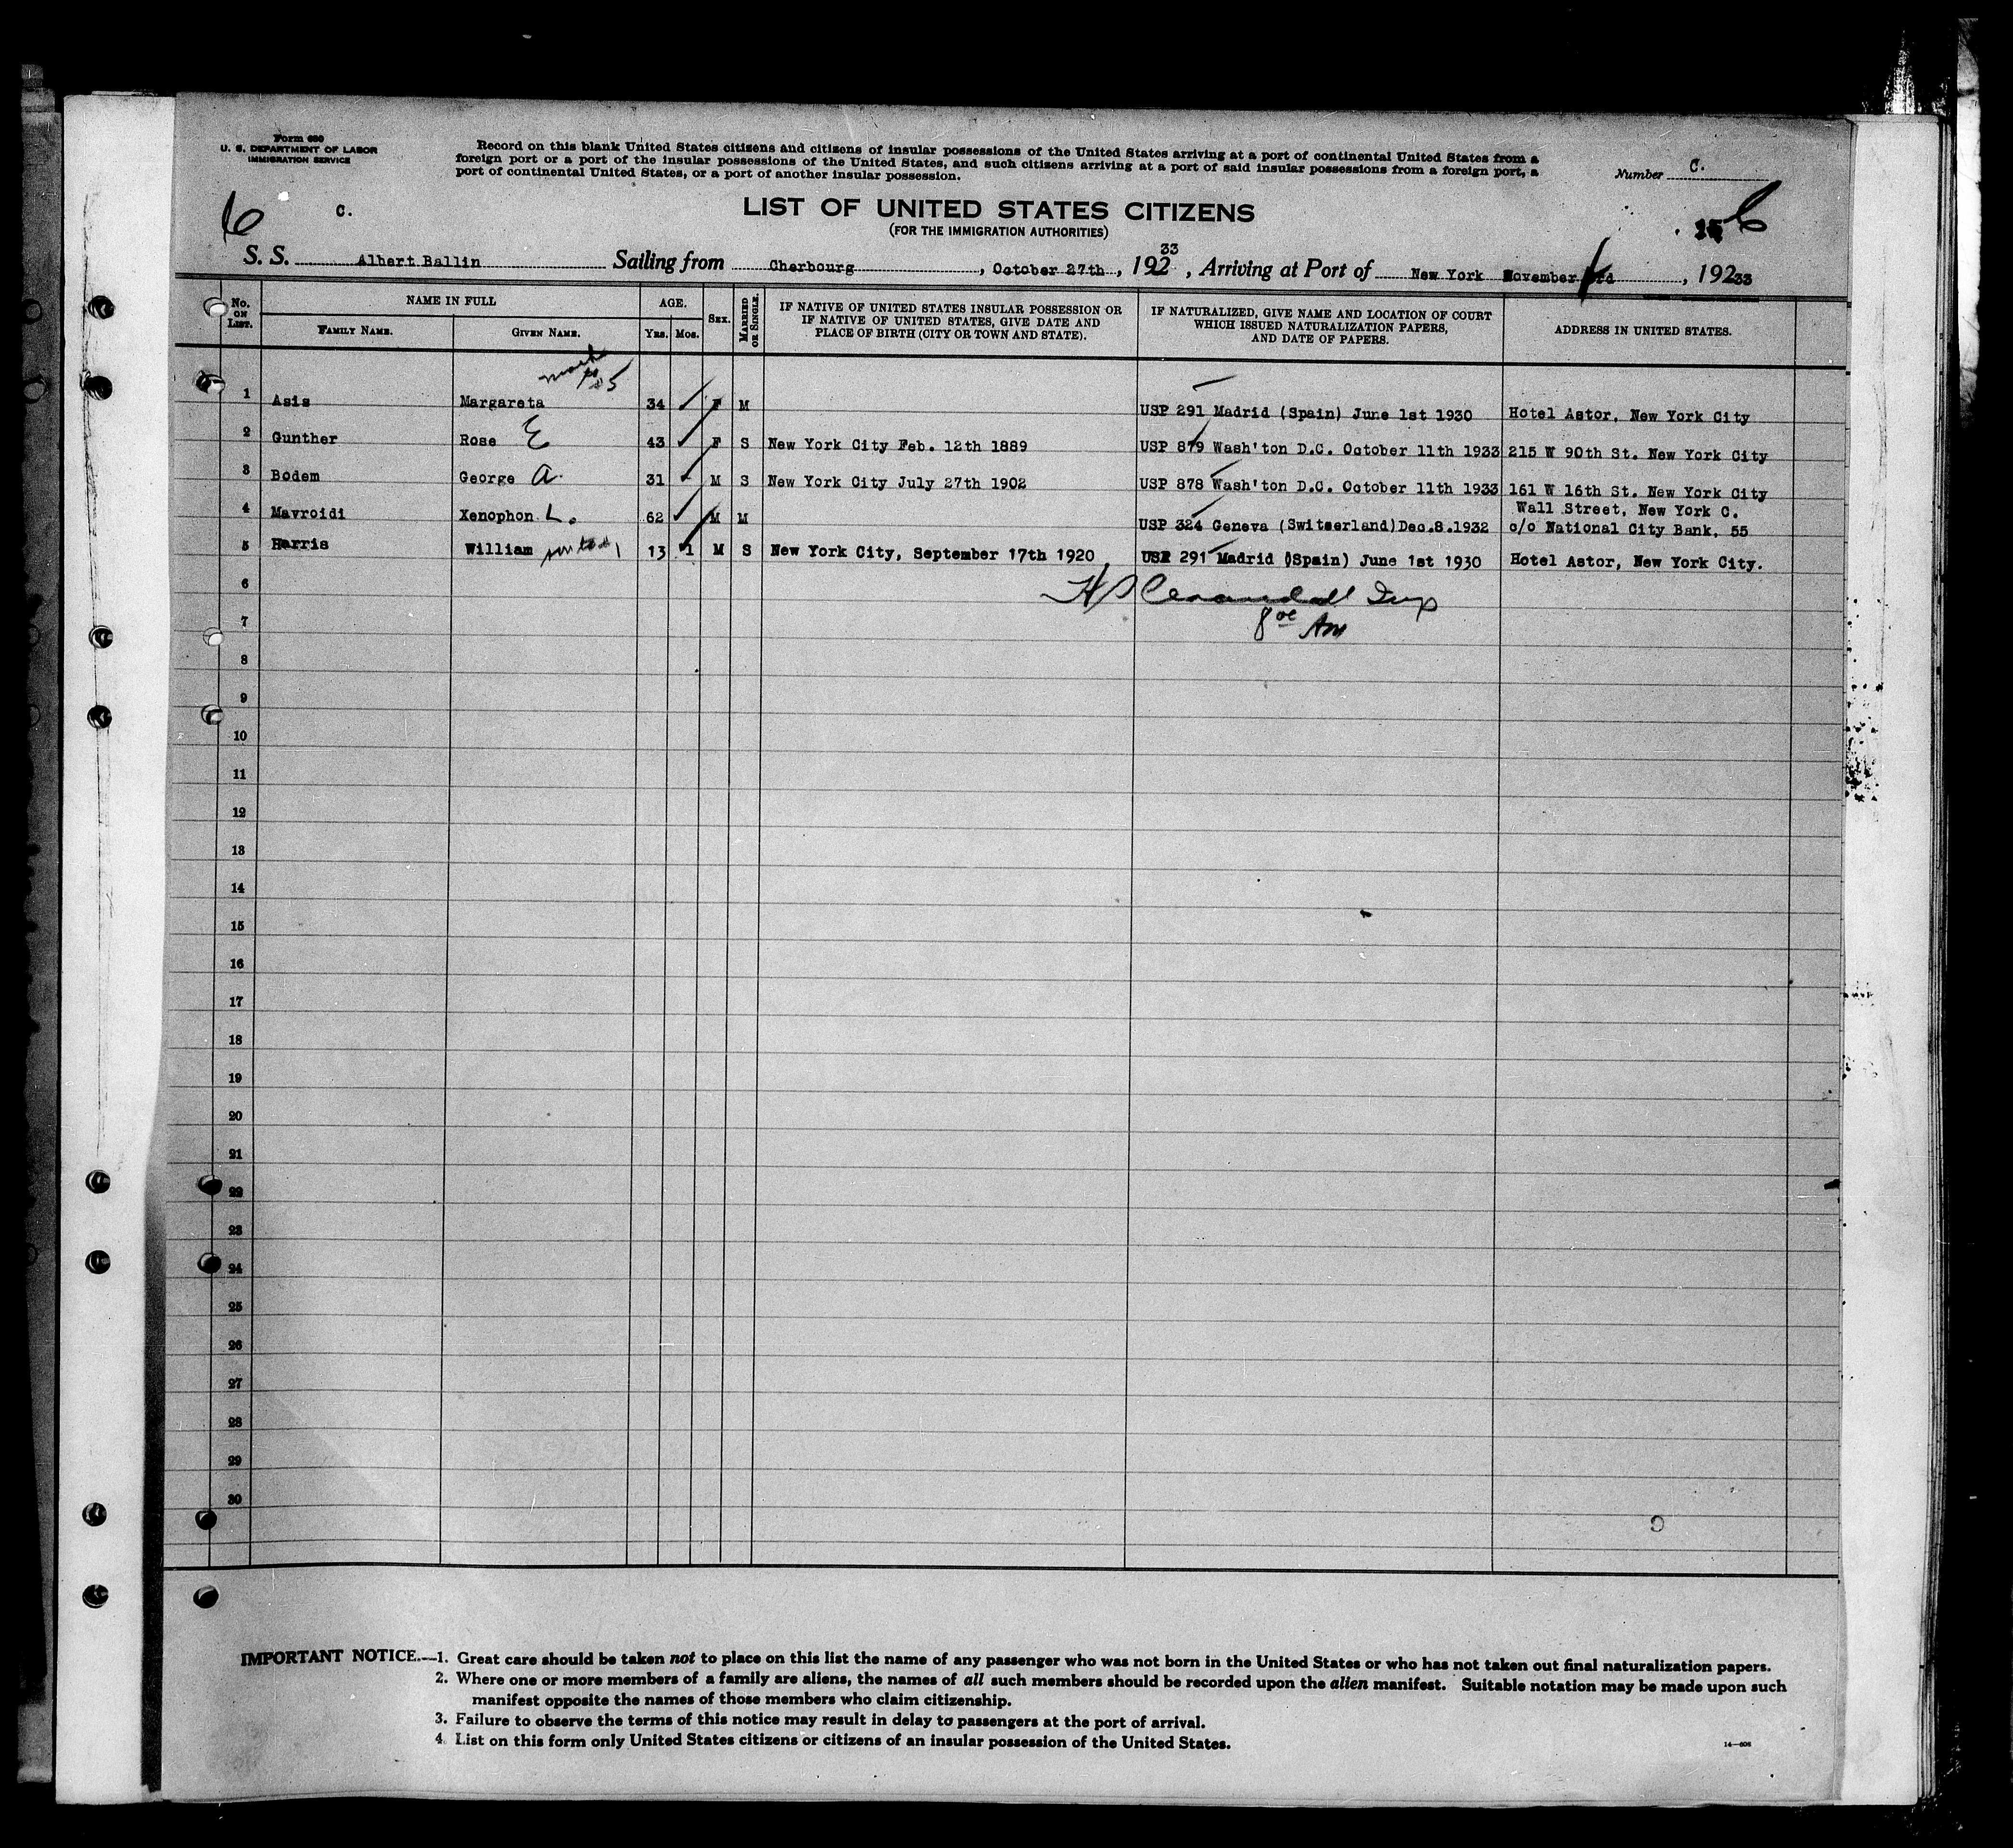 Form 630
U. S. DEPARTMENT OF LABOR
IMMIGRATION SERVICE
Record on this blank United States citizens and citizens of insular possessions of the United States arriving at a port of continental United States from a
foreign port or a port of the insular possessions of the United States, and such citizens arriving at a port of said insular possessions from a foreign port, a
port of continental United States, or a port of another insular possession.
Number C.
6 C.
LIST OF UNITED STATES CITIZENS
(FOR THE IMMIGRATION AUTHORITIES)
6
S. S. Albert Ballin Sailing from Cherbourg, October 27th, 192 33, Arriving at Port of New York November, 192 33
No. ON LIST. NAME IN FULL AGE. SEX. MARRIED OR SINGLE. IF NATIVE OF UNITED STATES INSULAR POSSESSION OR IF NATIVE OF UNITED STATES, GIVE DATE AND PLACE OF BIRTH (CITY OR TOWN AND STATE). IF NATURALIZED, GIVE NAME AND LOCATION OF COURT WHICH ISSUED NATURALIZATION PAPERS, AND DATE OF PAPERS. ADDRESS IN UNITED STATES.
FAMILY NAME. GIVEN NAME. YRS. MOS.
1 Asis Margareta 34 F M USP 291 Madrid (Spain) June 1st 1930 Hotel Astor, New York City
2 Gunther Rose E 43 F S New York City Feb. 12th 1889 USP 879 Wash'ton D.C. October 11th 1933 215 W 90th St. New York City
3 Bodem George A. 31 M S New York City July 27th 1902 USP 878 Wash'ton D.C. October 11th 1933 161 W 16th St. New York City
Wall Street, New York C.
4 Mavroidi Xenophon L. 62 M M USP 324 Geneva (Switzerland) Dec. 8. 1932 c/o National City Bank, 55
5 Harris William 13 1 M S New York City, September 17th 1920 USP 291 Madrid (Spain) June 1st 1930 Hotel Astor, New York City.
6
7
8
9
10
11
12
13
14
15
16
17
18
19
20
21
22
23
24
25
26
27
28
29
30
IMPORTANT NOTICE.—1. Great care should be taken not to place on this list the name of any passenger who was not born in the United States or who has not taken out final naturalization papers.
2. Where one or more members of a family are aliens, the names of all such members should be recorded upon the alien manifest. Suitable notation may be made upon such
manifest opposite the names of those members who claim citizenship.
3. Failure to observe the terms of this notice may result in delay to passengers at the port of arrival.
4. List on this form only United States citizens or citizens of an insular possession of the United States.